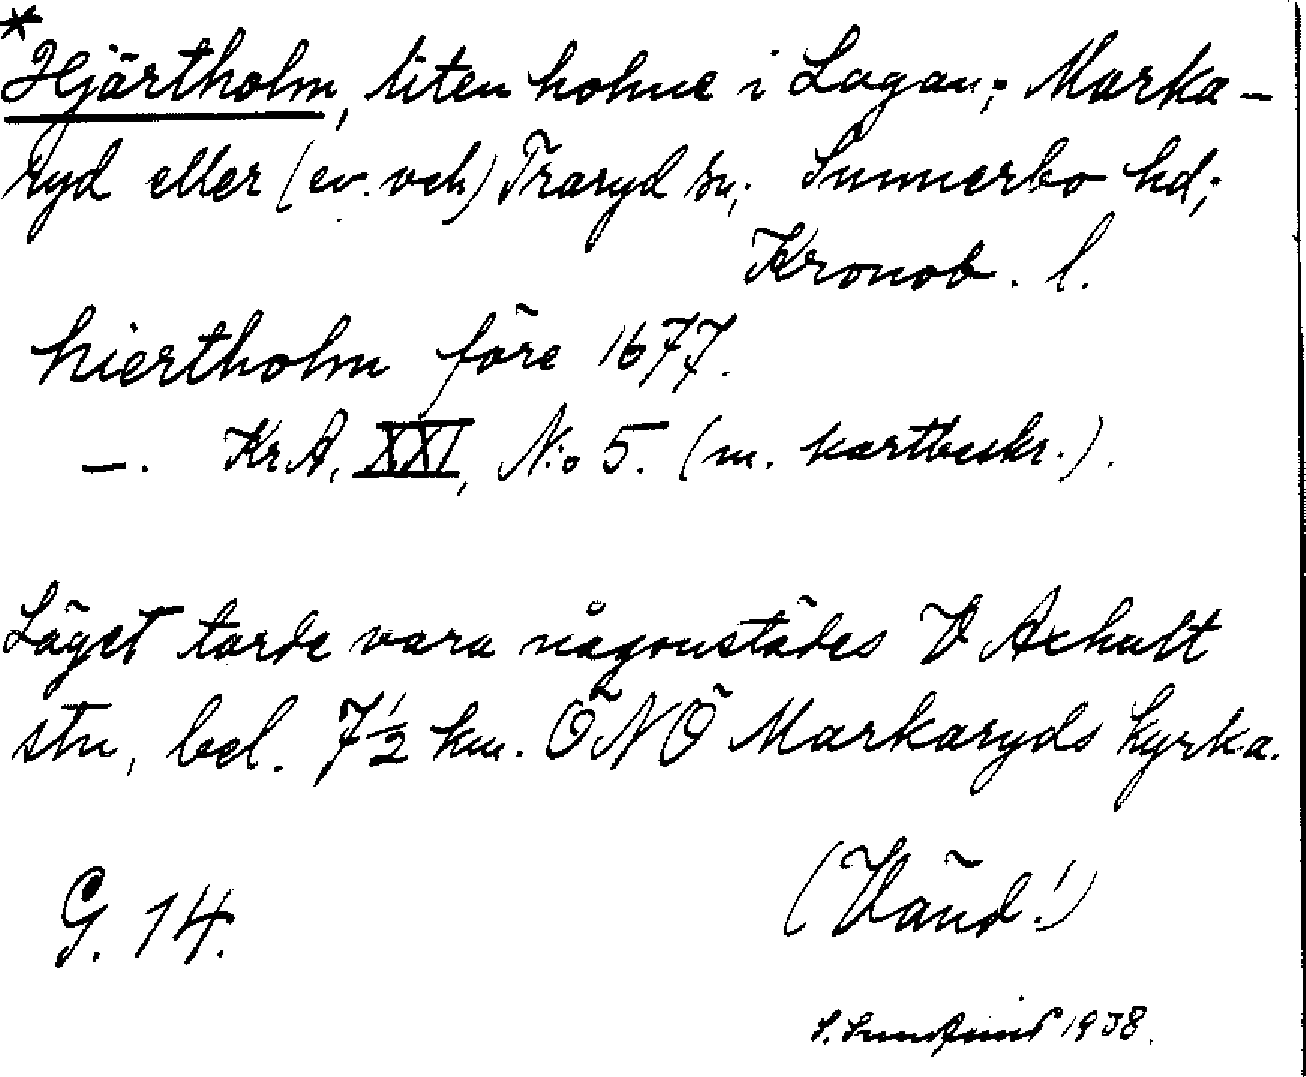 *
Hjärtholm, liten holme i Lagan; Marka-
ryd eller (ev. och) Traryd sn; Sunnerbo hd;
Kronob. l.
hiertholm före 1677.
—. KrA, XXI, N:o 5. (m. kartbeskr.).
Läget torde vara någonstädes V Axhult
stn, bel. 7½ km. ÖNÖ Markaryds kyrka.
G. 14.
(Vänd!)
1938.